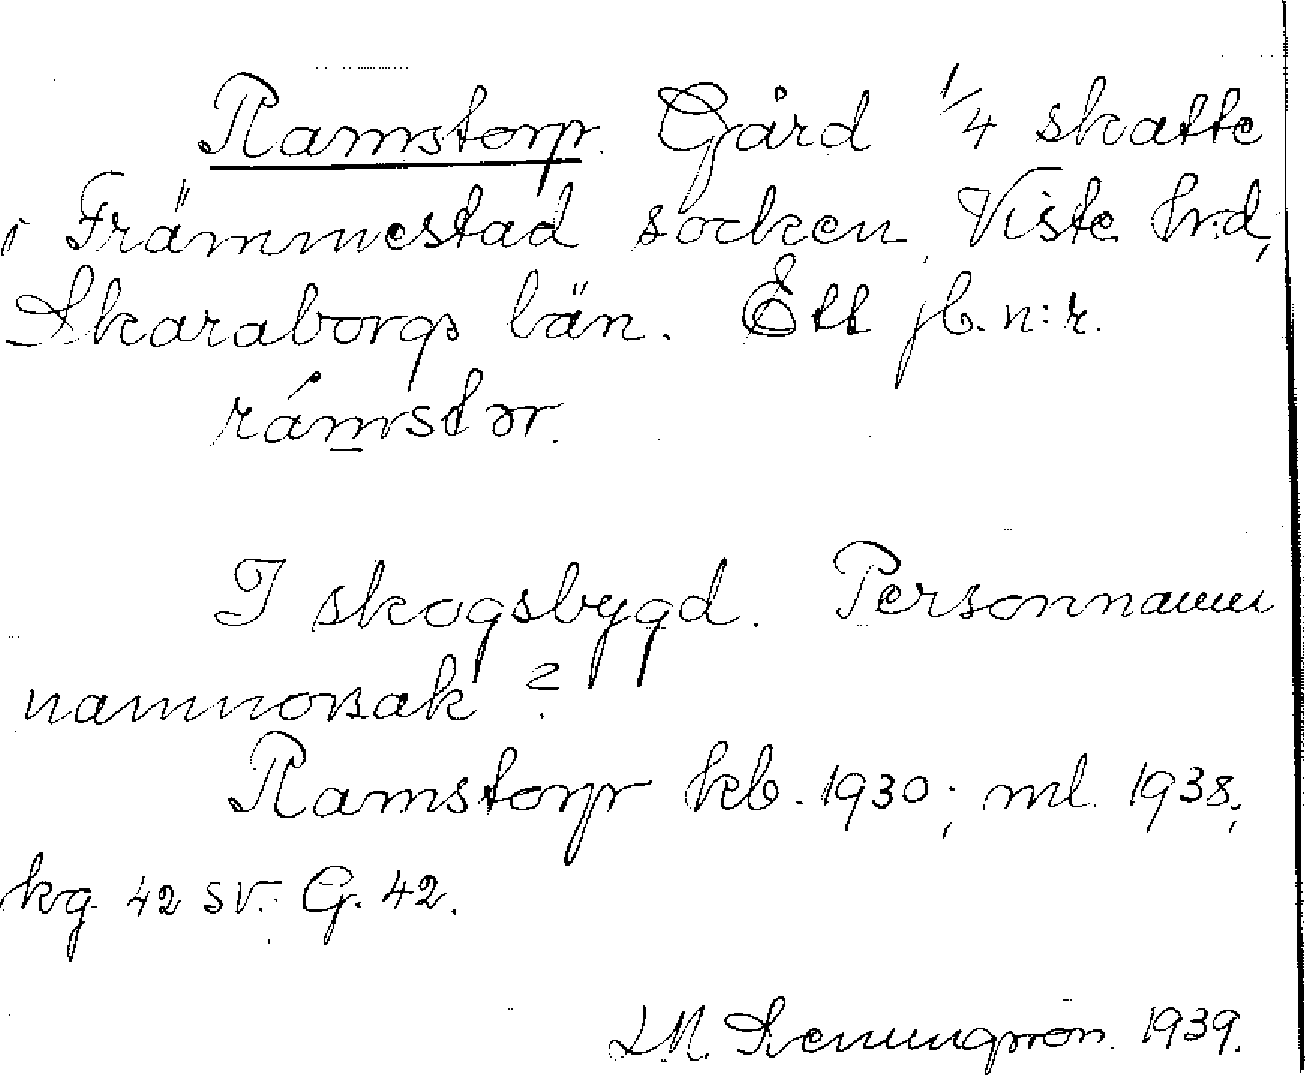 Ramstorp. Gård 1/4 skatte
i Främmestad socken, Viste hrd,
Skaraborgs län. Ett jb. n:r.
rámstər.
I skogsbygd. Personnamn
namnorsak?
Ramstorp kb. 1930; ml. 1938;
kg 42 sv. G. 42.
1939.